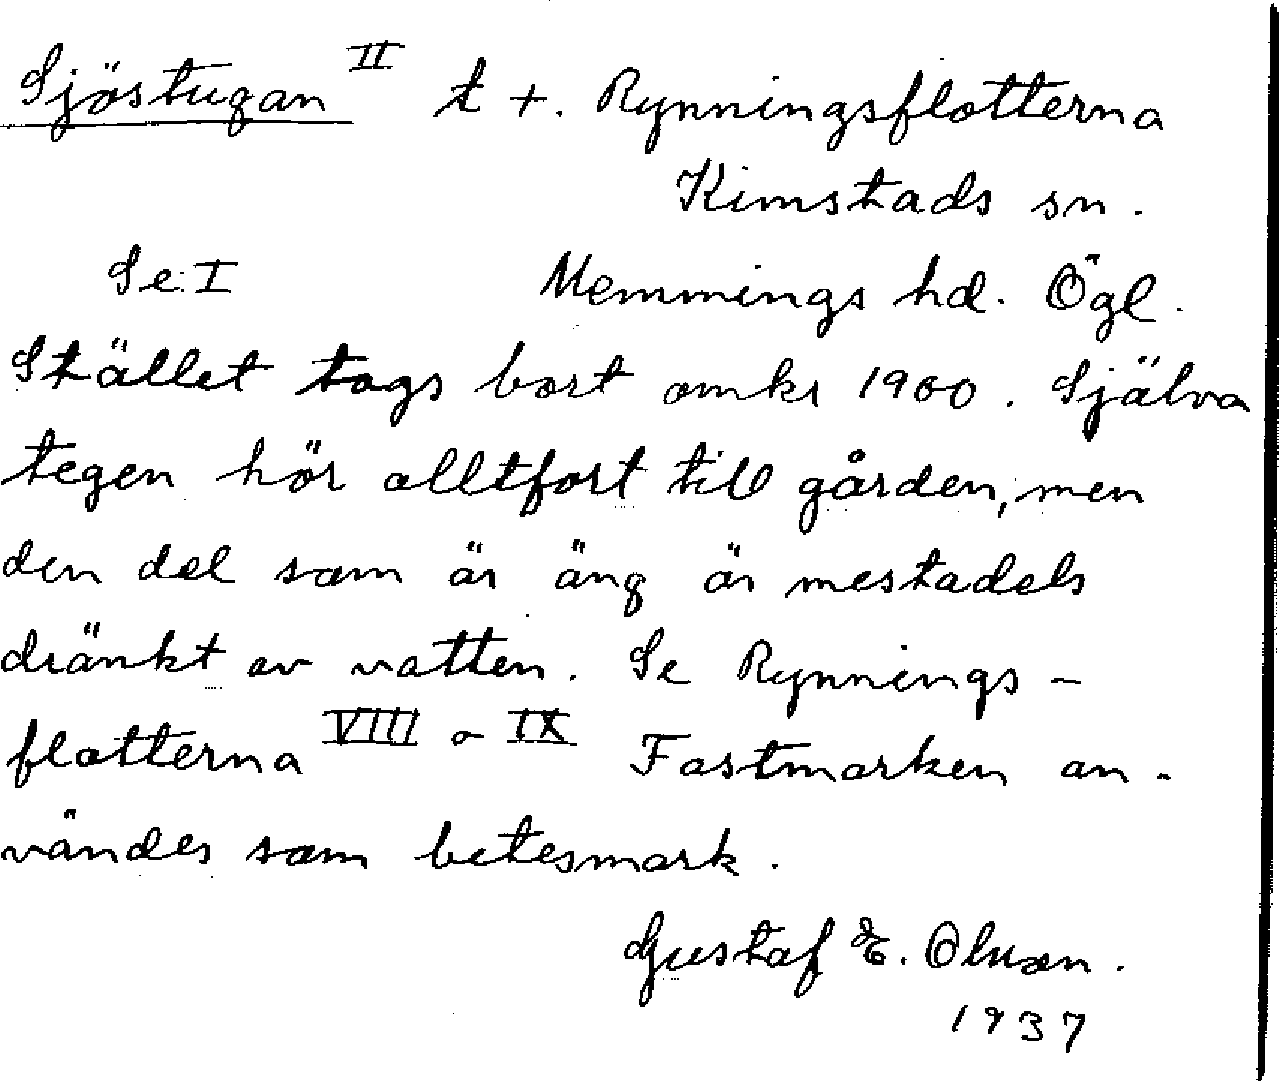 Sjöstugan II t +. Rynningsflotterna
Kimstads sn.
Se I Memmings hd. Ögl.
Stället togs bort omkr 1900. Själva
tegen hör alltfort till gården, men
den del som är äng är mestadels
dränkt av vatten. Se Rynnings-
flotterna VIII o IX Fastmarken an-
vändes som betesmark.
Gustaf E. Olsson.
1937